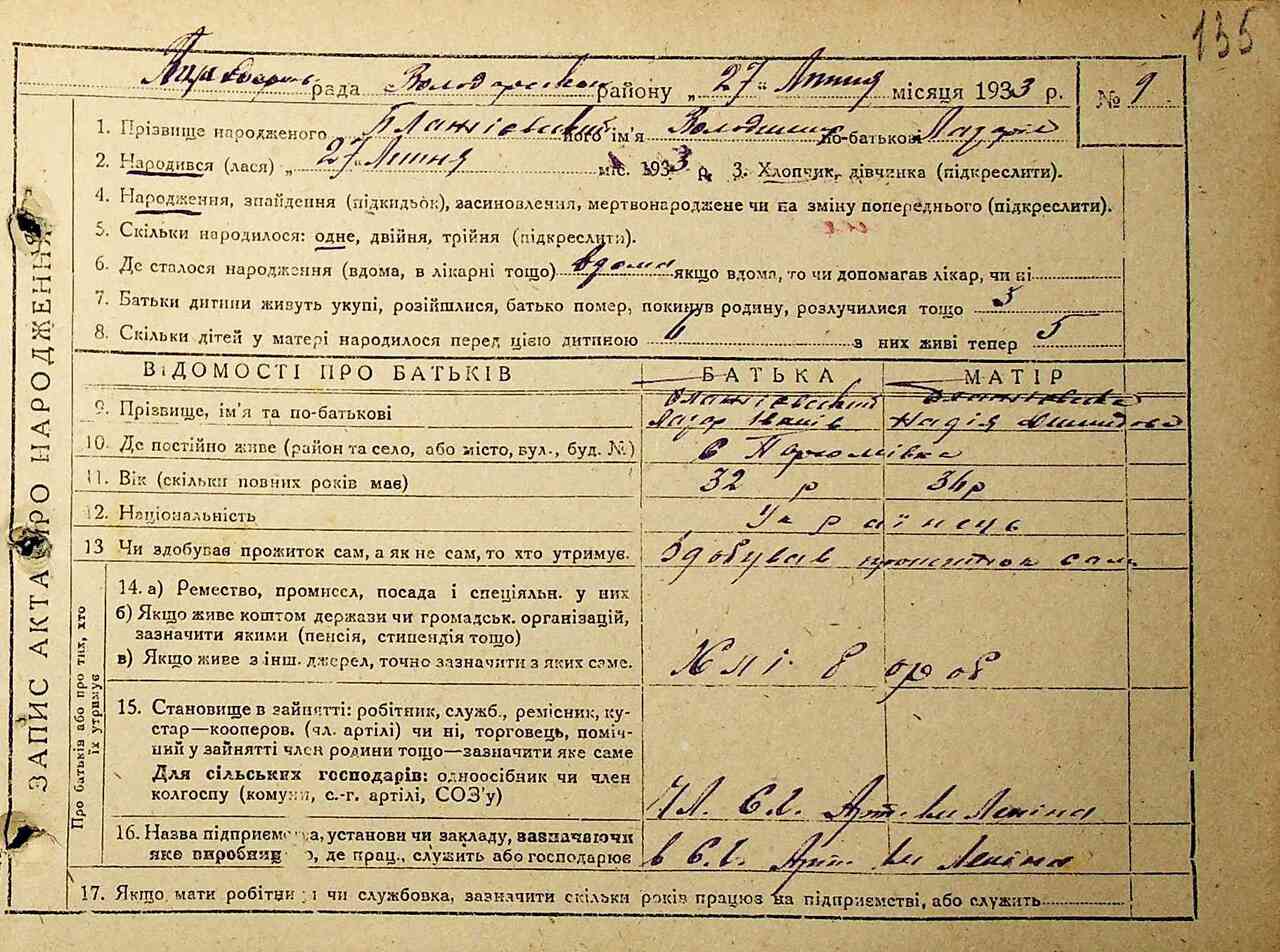 135
рада Володарської району „27" Липня місяця 1933 р. № 9
1. Прізвище народженого його ім'я Володимир по-батькові
2. Народився (лася) „27" Липня міс. 1933 р. 3. Хлопчик, дівчинка (підкреслити).
4. Народження, знайдення (підкидьок), засиновлення, мертвонароджене чи на зміну попереднього (підкреслити).
5. Скільки народилося: одне, двійня, трійня (підкреслити).
6. Де сталося народження (вдома, в лікарні тощо) вдома якщо вдома, то чи допомагав лікар, чи ні
7. Батьки дитини живуть укупі, розійшлися, батько помер, покинув родину, розлучилися тощо
8. Скільки дітей у матері народилося перед цією дитиною з них живі тепер 5
ВІДОМОСТІ ПРО БАТЬКІВ БАТЬКА МАТІР
9. Прізвище, ім'я та по-батькові
Лазар Іванів Надія
10. Де постійно живе (район та село, або місто, вул., буд. №) с Пархомівка
11. Вік (скільки повних років має) 32 р 34 р
12. Національність Українець
13 Чи здобував прожиток сам, а як не сам, то хто утримує. Здобував прожиток сам
14. а) Ремество, промисел, посада і спеціяльн. у них
б) Якщо живе коштом держави чи громадськ. організацій,
зазначити якими (пенсія, стипендія тощо)
в) Якщо живе з інш. джерел, точно зазначити з яких саме.
15. Становище в зайнятті: робітник, служб., ремісник, ку-
стар—кооперов. (чл. артілі) чи ні, торговець, поміч-
ний у зайнятті член родини тощо—зазначити яке саме
Для сільських господарів: одноосібник чи член
колгоспу (комуни, с.-г. артілі, СОЗ'у) Чл. С.г. Арт. Леніна
16. Назва підприємства, установи чи закладу, зазначаючи
яке виробництво, де прац., служить або господарює в С.г. Арт. Леніна
17. Якщо мати робітниця чи службовка, зазначити скільки років працює на підприємстві, або служить
ЗАПИС АКТА ПРО НАРОДЖЕННЯ
Про батьків або про тих, хто
їх утримує